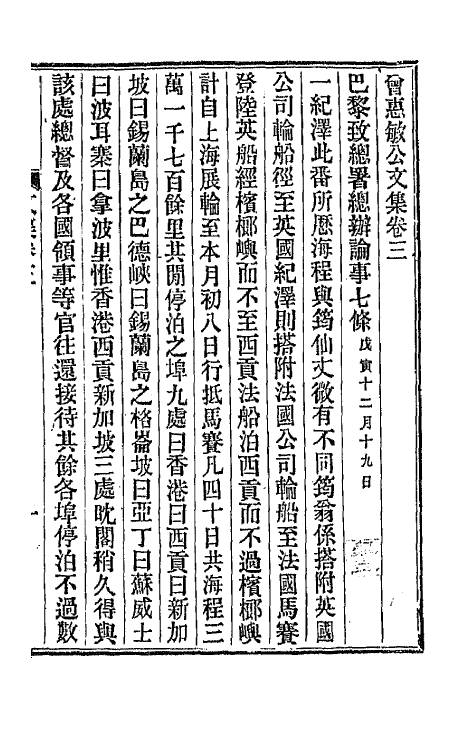 曾惠敏公文集卷三
巴黎致總署總辦論事七條戊寅十二月十九日
一紀澤此番所歷海程與筠仙丈微有不同筠翁係搭附英國
公司輪船徑至英國紀澤則搭附法國公司輪船至法國馬賽
登陸英船經檳榔嶼而不至西貢法船泊西貢而不過檳榔嶼
計自上海展輪至本月初八日行抵馬賽凡四十日共海程三
萬一千七百餘里其閒停泊之埠九處曰香港曰西貢曰新加
坡曰錫蘭島之巴德峽曰錫蘭島之格崙坡曰亞丁曰蘇威士
曰波耳寨曰拿波里惟香港西貢新加坡三處躭閣稍久得與
該處總督及各國領事等官往還接待其餘各埠停泊不過數